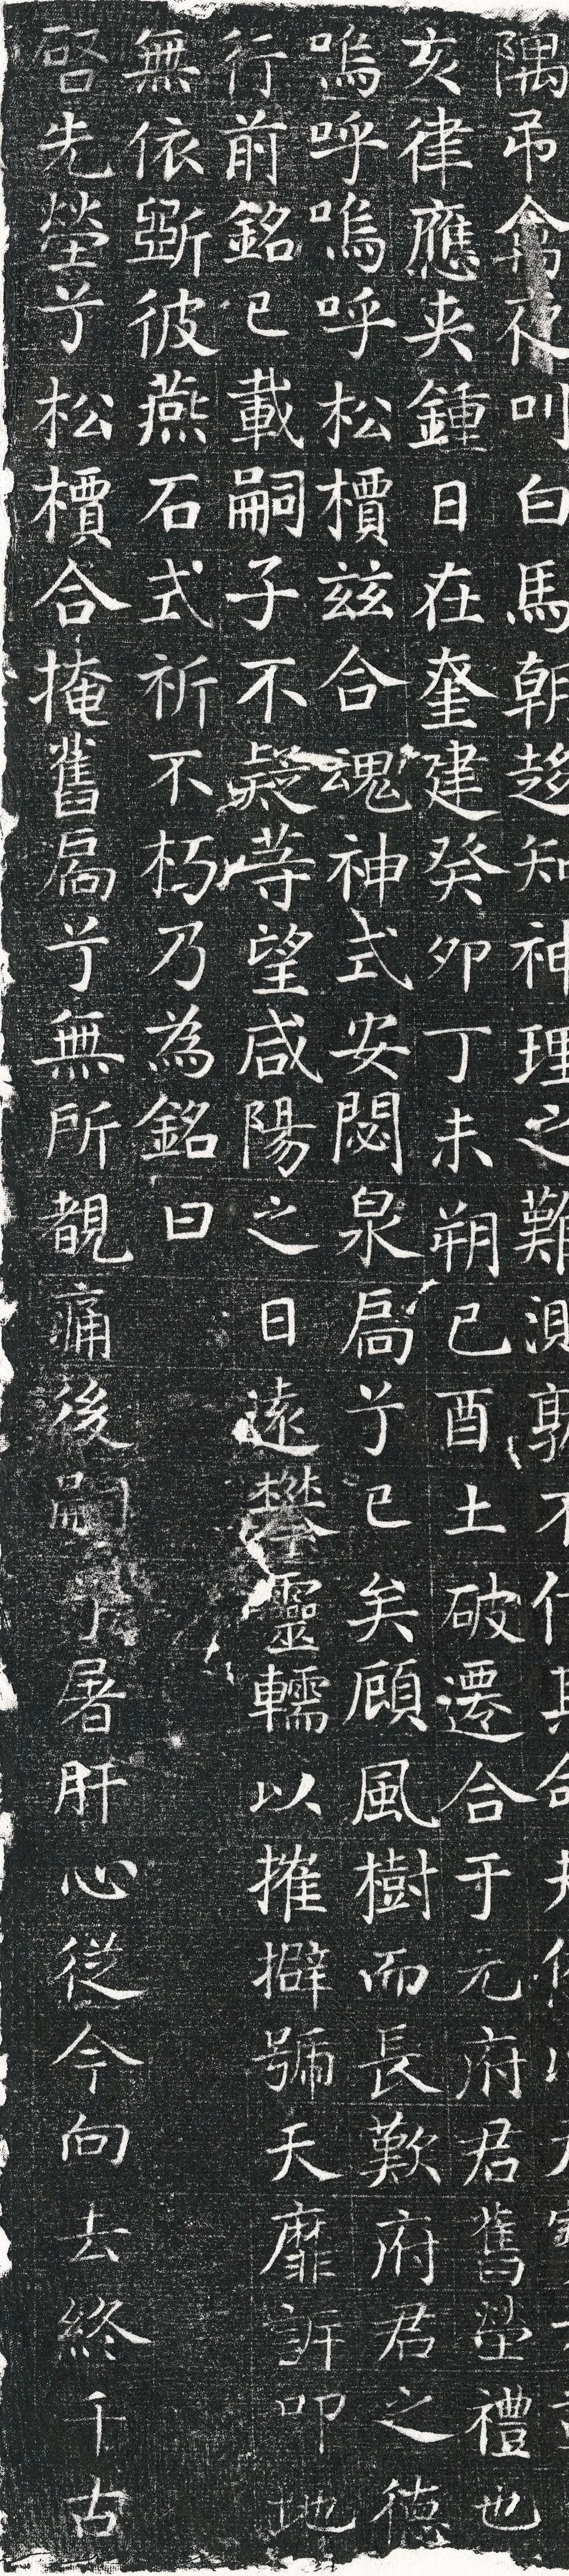 隅吊禽夜叫白馬朝趍知神理之難測
亥律應夾鍾日在奎建癸卯丁未朔己酉土破遷合于元府君舊塋禮也
嗚呼嗚呼松檟兹合魂神式安閟泉扄兮已矣顧風樹而長歎府君之德
行前銘已載嗣子不疑等望咸陽之日遠攀靈轜以摧擗號天靡訴叩地
無依斵彼燕石式祈不朽乃為銘曰
啓先塋兮松檟合掩舊扄兮無所覩痛後嗣兮屠肝心從今向去終千古